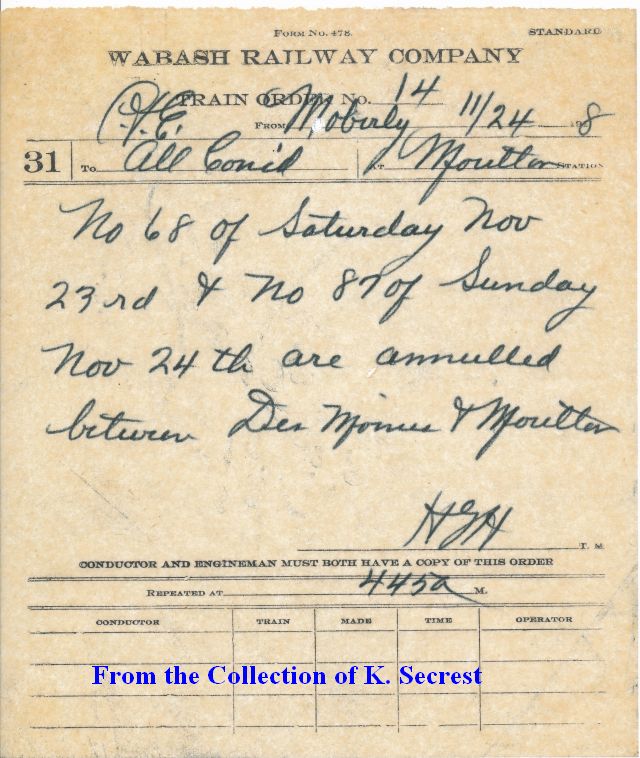 Form No. 478. STANDARD
WABASH RAILWAY COMPANY
TRAIN ORDER No. 14
From Moberly 11/24 198
31 To All Conc'd At Moulton STATION
No 68 of Saturday Nov
23rd & No 87 of Sunday
Nov 24th are annulled
between Des Moines & Moulton
HGH
T. M.
CONDUCTOR AND ENGINEMAN MUST BOTH HAVE A COPY OF THIS ORDER
Repeated at 445a M.
CONDUCTOR TRAIN MADE TIME OPERATOR
From the Collection of K. Secrest